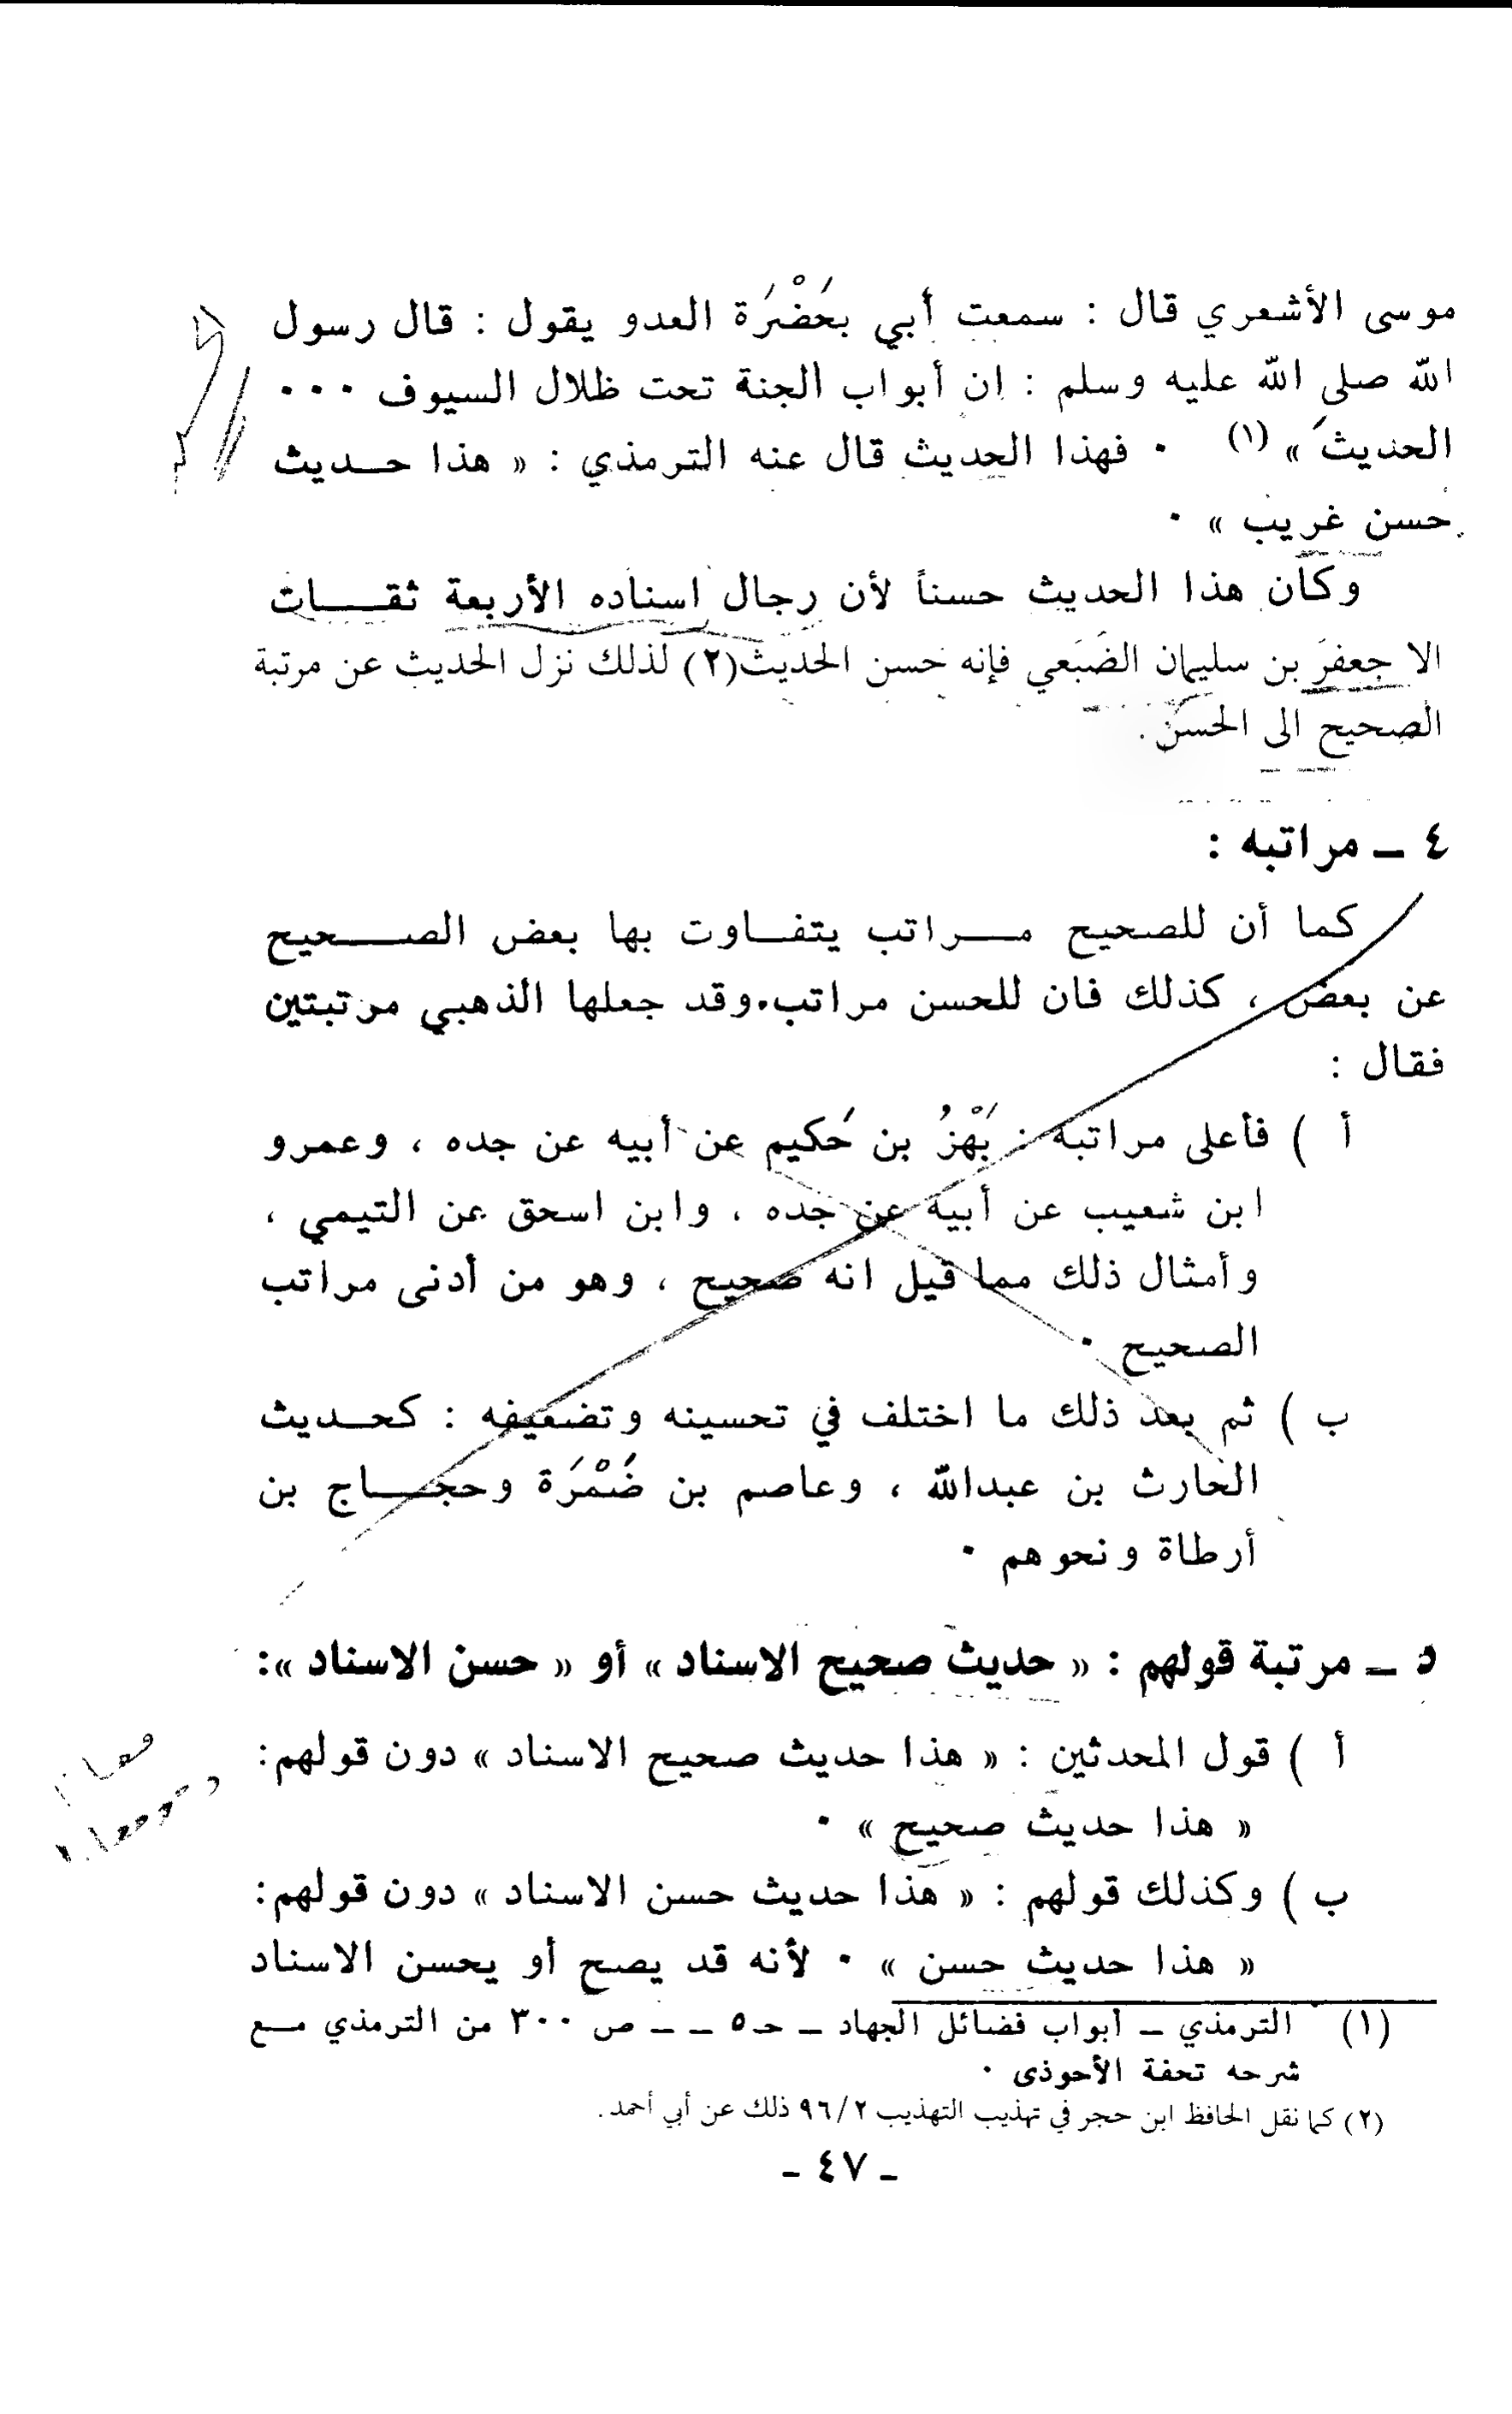 موسى الأشعري قال : سمعت أبي بحَضْرَة العدو يقول : قال رسول
الله صلى الله عليه وسلم : ان أبواب الجنة تحت ظلال السيوف ٠٠٠
الحديث » (١) ٠ فهذا الحديث قال عنه الترمذي : « هذا حـديث
حسن غريب » ٠
وكان هذا الحديث حسناً لأن رجال اسناده الأربعة ثقـــات
الا جعفرَ بن سليمان الضُبَعي فإنه حسن الحديث(٢) لذلك نزل الحديث عن مرتبة
الصحيح الى الحسن .
٤ ـ مراتبه :
كما أن للصحيح مـــراتب يتفـاوت بها بعض الصــــحيح
عن بعض ، كذلك فان للحسن مراتب٠وقد جعلها الذهبي مرتبتين
فقال :
أ ) فأعلى مراتبه : بَهْزُ بن حَكيم عن أبيه عن جده ، وعمرو
ابن شعيب عن أبيه عن جده ، وابن اسحق عن التيمي ،
وأمثال ذلك مما قيل انه صحيح ، وهو من أدنى مراتب
الصحيح ٠
ب ) ثم بعد ذلك ما اختلف في تحسينه وتضعيفه : كحـديث
الحارث بن عبدالله ، وعاصم بن ضَمْرَة وحجـــاج بن
أرطاة ونحوهم ٠
٥ ـ مرتبة قولهم : « حديث صحيح الاسناد » أو « حسن الاسناد »:
أ ) قول المحدثين : « هذا حديث صحيح الاسناد » دون قولهم:
« هذا حديث صحيح » ٠
ب ) وكذلك قولهم : « هذا حديث حسن الاسناد » دون قولهم:
« هذا حديث حسن » ٠ لأنه قد يصح أو يحسن الاسناد
(١) الترمذي ـ أبواب فضائل الجهاد ـ حـ٥ ـ ـ ص ٣٠٠ من الترمذي مـع
شرحه تحفة الأحوذى ٠
(٢) كما نقل الحافظ ابن حجر في تهذيب التهذيب ٩٦/٢ ذلك عن أبي أحمد .
ـ ٤٧ ـ